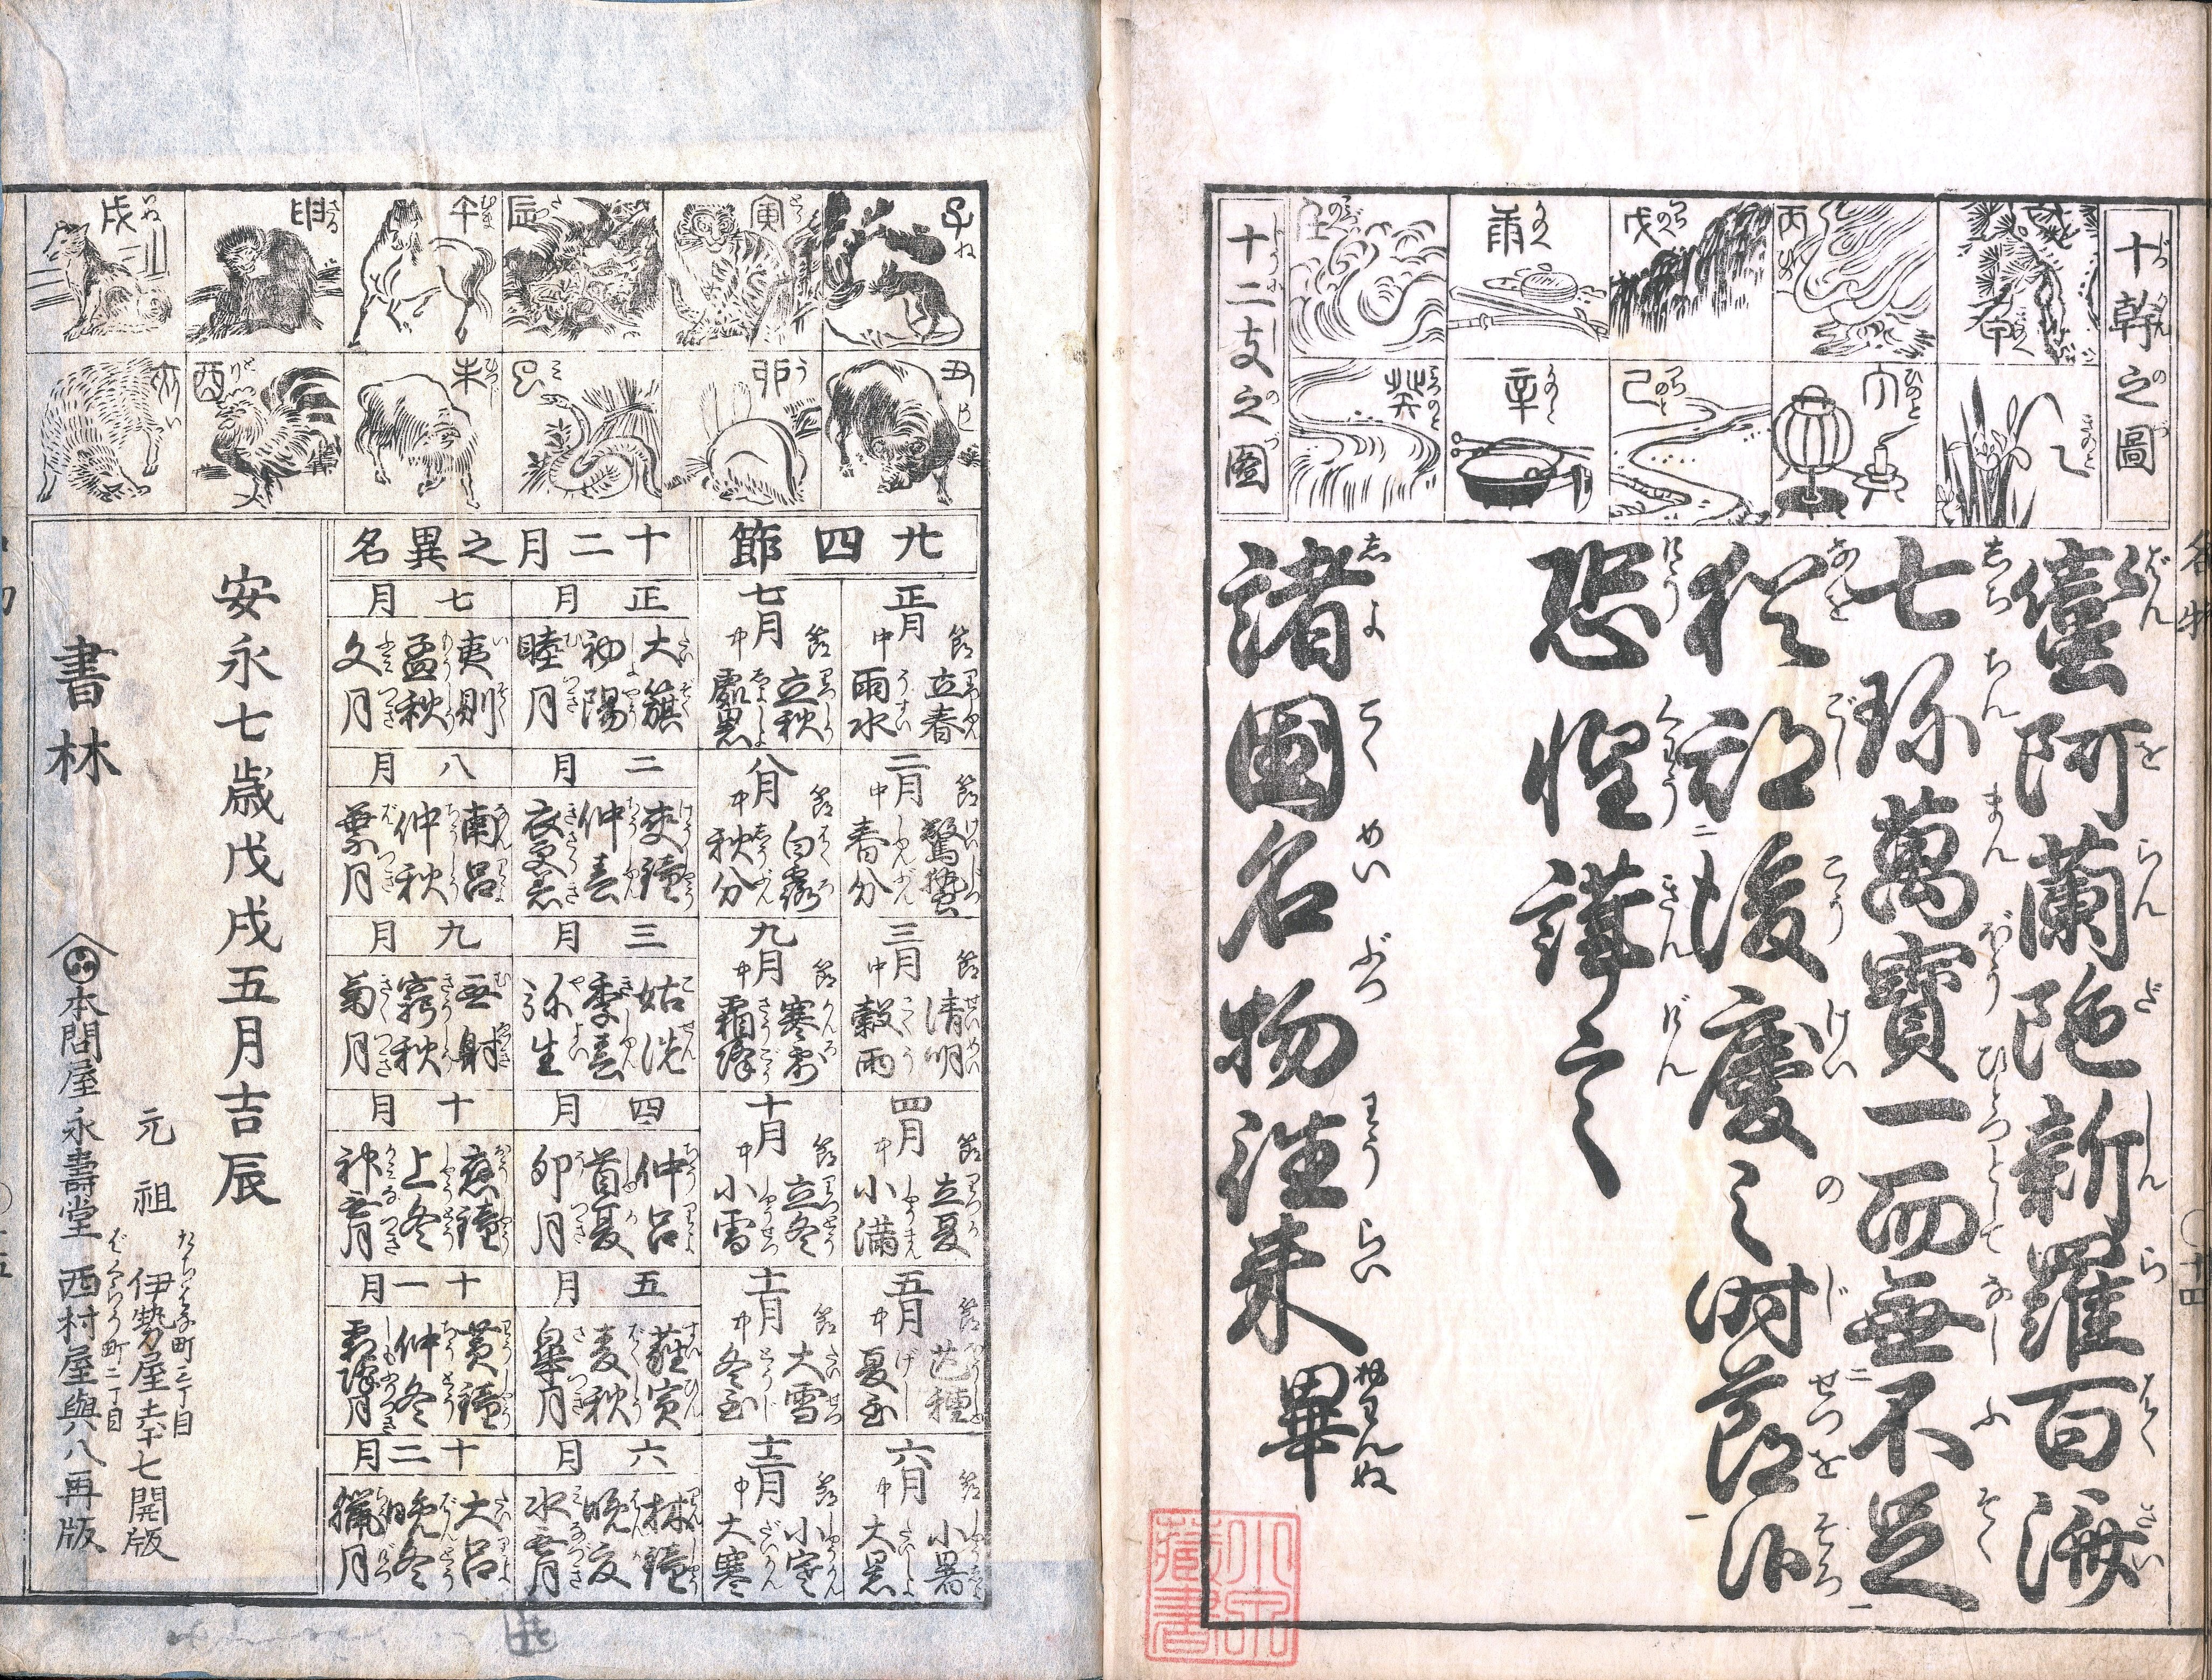 十幹之圖
甲 きのえ
乙 きのと
丙
丁 ひのと
戊 つちのえ
己 つちのと
庚 かのえ
辛 かのと
壬
癸 みづのと
十二支之圖
蠻阿蘭陀新羅百濟
七珍萬寶一而無不足
猶期後慶之時節候
恐惶謹言
諸國名物往来畢
十四
子 ね
丑 うし
寅 とら
卯 う
辰 たつ
巳 み
午 むま
未 ひつじ
申 さる
酉 とり
戌 いぬ
亥 い
廿四節
正月 節 立春 中 雨水
二月 節 驚蟄 中 春分
三月 節 清明 中 穀雨
四月 節 立夏 中 小満
五月 節 芒種 中 夏至
六月 節 小暑 中 大暑
七月 節 立秋 中 處暑
八月 節 白露 中 秋分
九月 節 寒露 中 霜降
十月 節 立冬 中 小雪
十一月 節 大雪 中 冬至
十二月 節 小寒 中 大寒
十二月之異名
正月
大簇 初陽 睦月
二月
夾鐘 仲春 衣更着
三月
姑洗 季春 弥生
四月
仲呂 首夏 卯月
五月
蕤賓 麦秋 皐月
六月
林鐘 晩夏 水無月
七月
夷則 孟秋 文月
八月
南呂 仲秋 葉月
九月
無射 窮秋 菊月
十月
應鐘 上冬 神無月
十一月
黄鐘 仲冬 霜降月
十二月
大呂 晩冬 臘月
安永七歳戊戌五月吉辰
書林
元祖 町二丁目 伊勢屋吉七開版
本問屋永壽堂 ばくろう町二丁目 西村屋與八再版